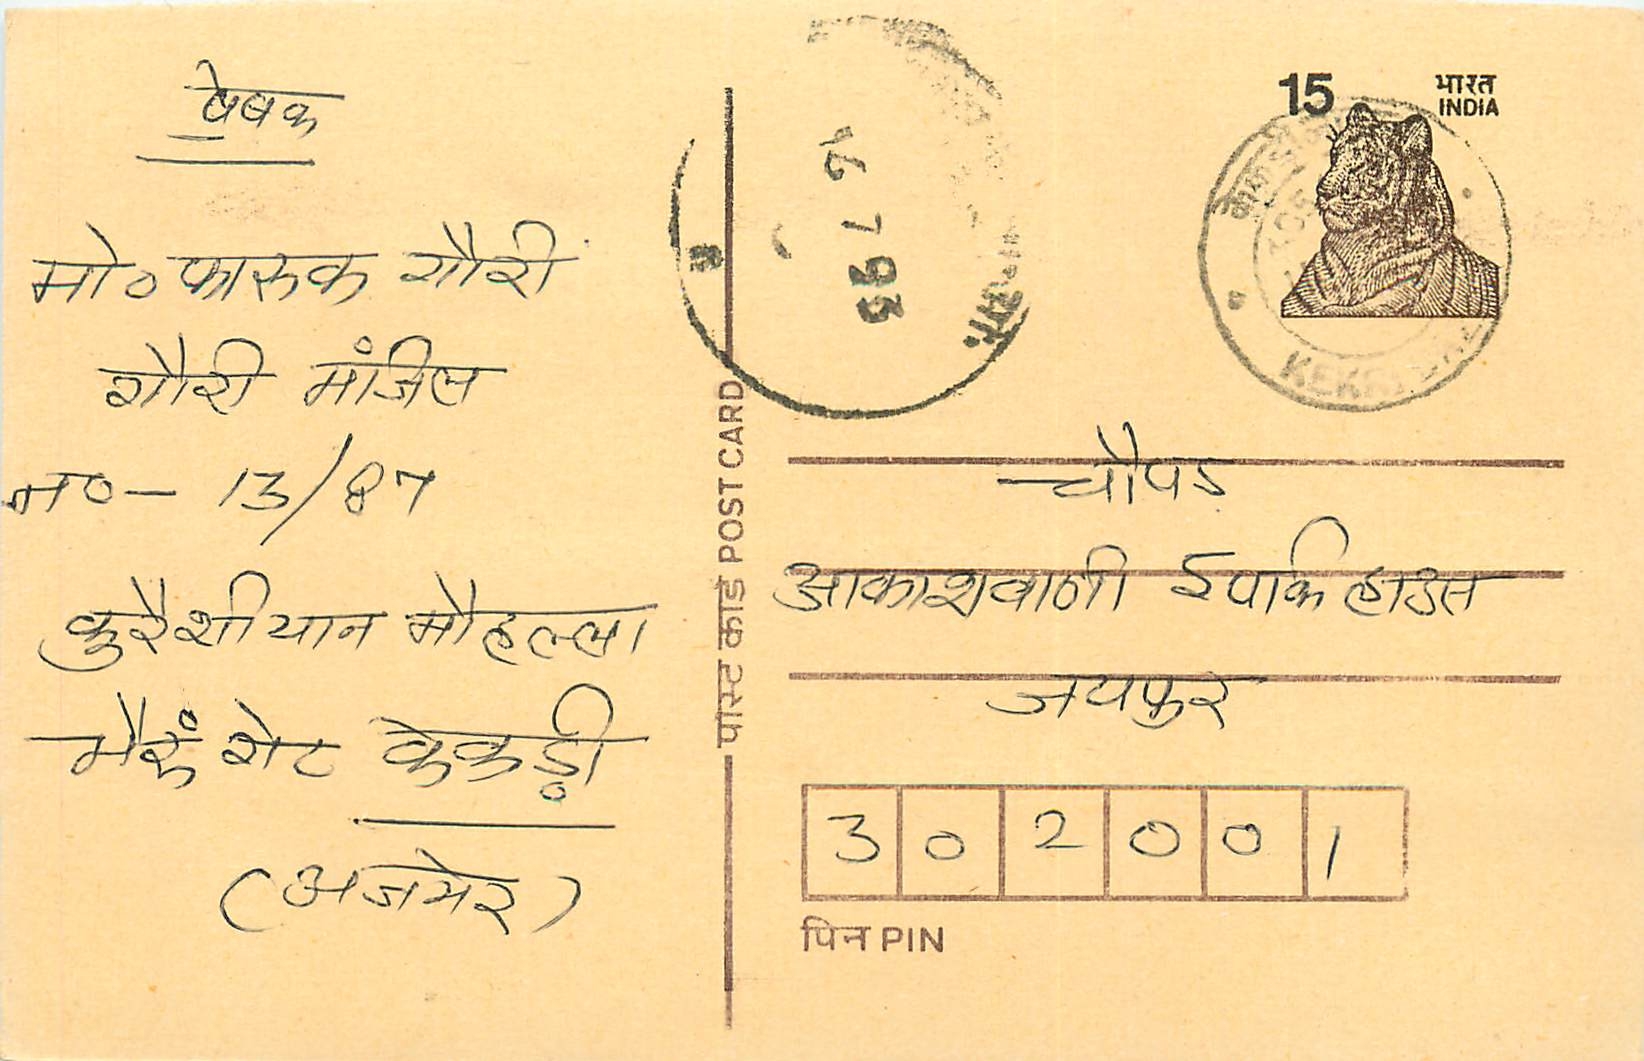 प्रेषक
मो० फारूक गौरी
गौरी मंजिल
न०- 13/87
कुरैशीयान मौहल्ला
भैरूं गेट केकड़ी
(अजमेर)
पोस्ट कार्ड POST CARD
16 7 93
15
भारत
INDIA
चौपड
आकाशवाणी ईपार्क हाउस
जयपुर
302001
पिन PIN